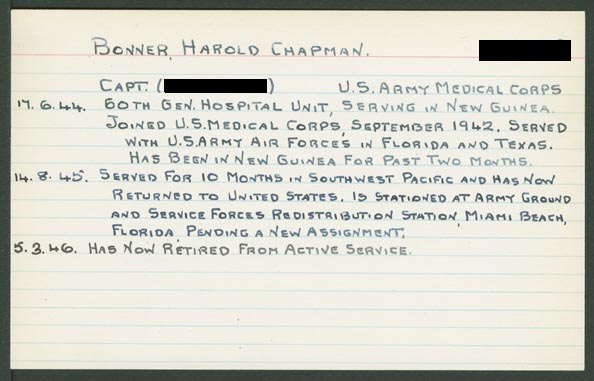 BONNER, HAROLD CHAPMAN.
CAPT. ( ) U.S. ARMY MEDICAL CORPS
17.6.44. 60TH GEN. HOSPITAL UNIT, SERVING IN NEW GUINEA.
JOINED U.S. MEDICAL CORPS, SEPTEMBER 1942. SERVED
WITH U.S. ARMY AIR FORCES IN FLORIDA AND TEXAS.
HAS BEEN IN NEW GUINEA FOR PAST TWO MONTHS.
14.8.45. SERVED FOR 10 MONTHS IN SOUTHWEST PACIFIC AND HAS NOW
RETURNED TO UNITED STATES. IS STATIONED AT ARMY GROUND
AND SERVICE FORCES REDISTRIBUTION STATION, MIAMI BEACH,
FLORIDA, PENDING A NEW ASSIGNMENT.
5.3.46. HAS NOW RETIRED FROM ACTIVE SERVICE.